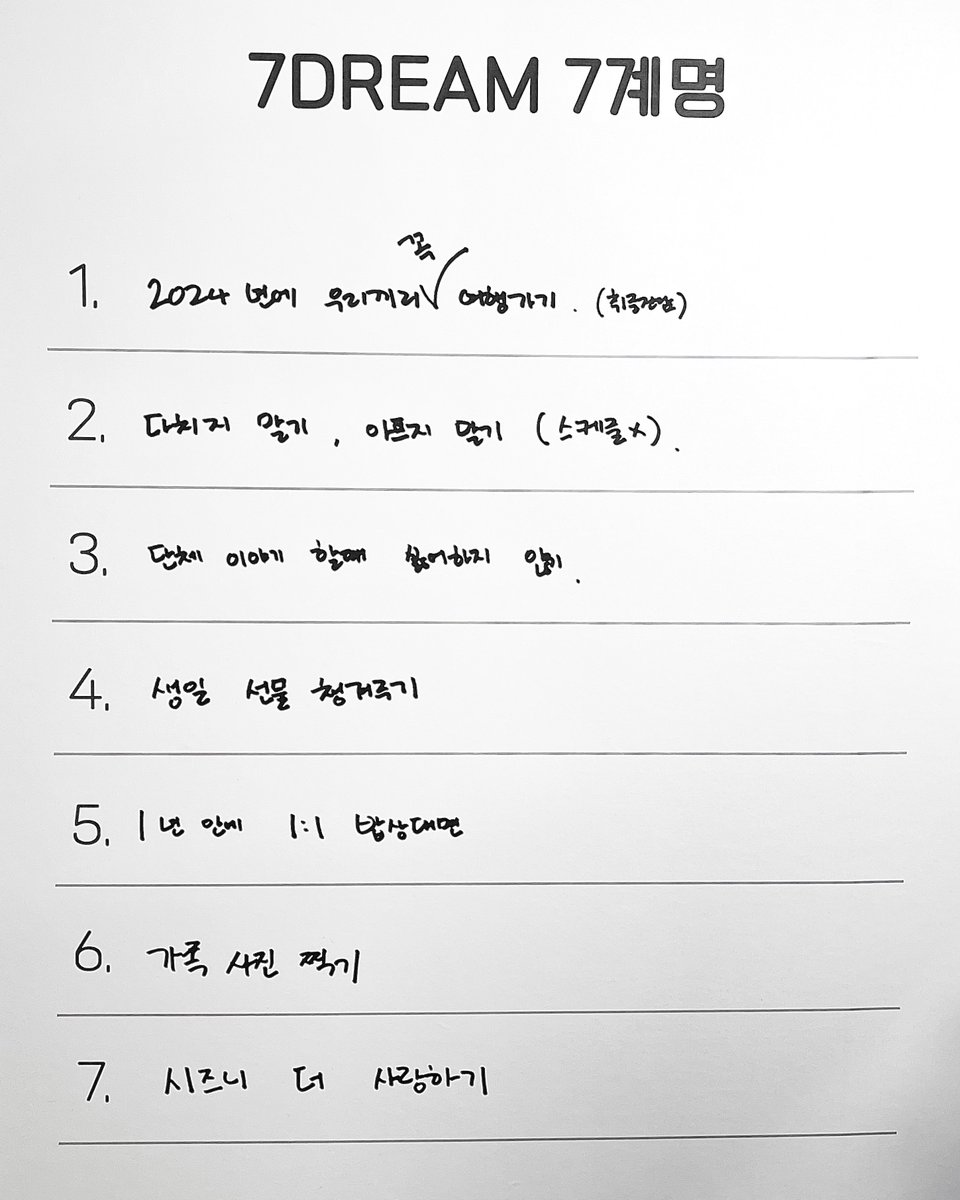 7DREAM 7계명
꼭
1. 2024 년에 우리끼리 ✓ 여행가기.
2. 다치지 말기, 아프지 말기 (스케줄 X).
3. 단체 이야기 할때 싫어하지 않기.
4. 생일 선물 챙겨주기
5. 1년 안에 1:1 밥상대면
6. 가족 사진 찍기
7. 시즈니 더 사랑하기